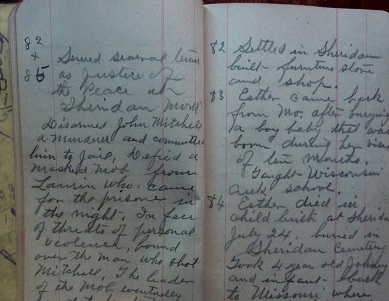 82
+
85
Served several terms
as Justice of
the Peace at
Sheridan Mont
Disarmed John Mitchell
a Murderer and committed
him to Jail, Defied a
masked Mob from
Laurin who came
for the prisoner in
the night. In face
of threats of personal
violence, bound
over the man who shot
Mitchell, The leader
of the Mob
82 Settled in Sheridan
built furniture store
and shop.
83 Esther came back
from Mo. after burying
a boy baby that was
born during her
of ten Months.
Taught Wisconsin
Creek school.
84 Esther died in
child birth at Sheridan
July 24, buried in
Sheridan Cemetery
Took 4 year old Johnny
and infant back
to Missouri where